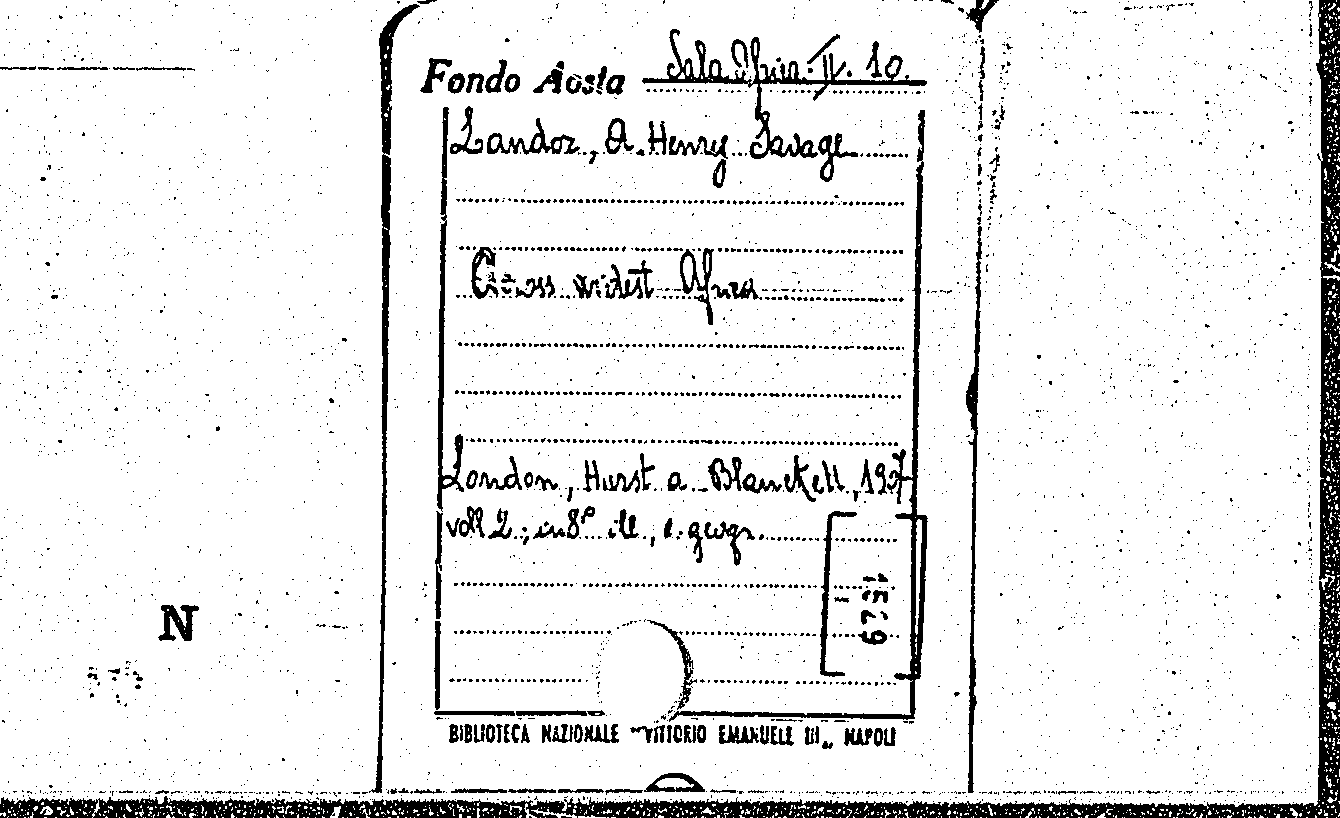 Fondo Aosta Sala Africa. II. 10.
Landor, A. Henry Savage
Across widest Africa
London, Hurst a. Blanckett, 1907
voll 2; in 8° ill., c. geogr.
1579
I
N
BIBLIOTECA NAZIONALE "VITTORIO EMANUELE III„ NAPOLI